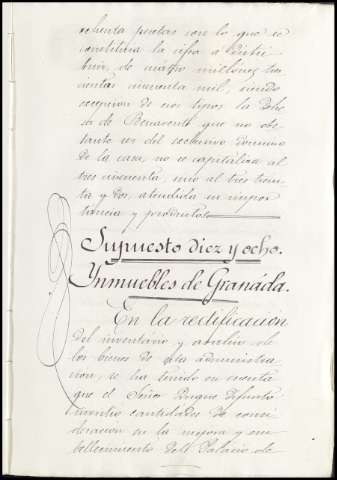 ochenta pesetas con lo que se
constituye la cifra a distri-
buir, de cuatro millones tres-
cientas cincuenta mil, siendo
excepcion de esos tipos la Dehe-
sa de Benavente que no obs-
tante ser del exclusivo dominio
de la casa, no se capitaliza al
tres cincuenta sino al tres trein-
ta y dos, atendida su impor-
tancia y productos.
Supuesto diez y ocho.
Ynmuebles de Granada.
En la rectificacion
del inventario y avalúo de
los bienes de esta administra-
cion, se ha tenido en cuenta
que el Señor Duque difunto
invirtió cantidades de consi-
deracion en la mejora y em-
bellecimiento del Palacio de